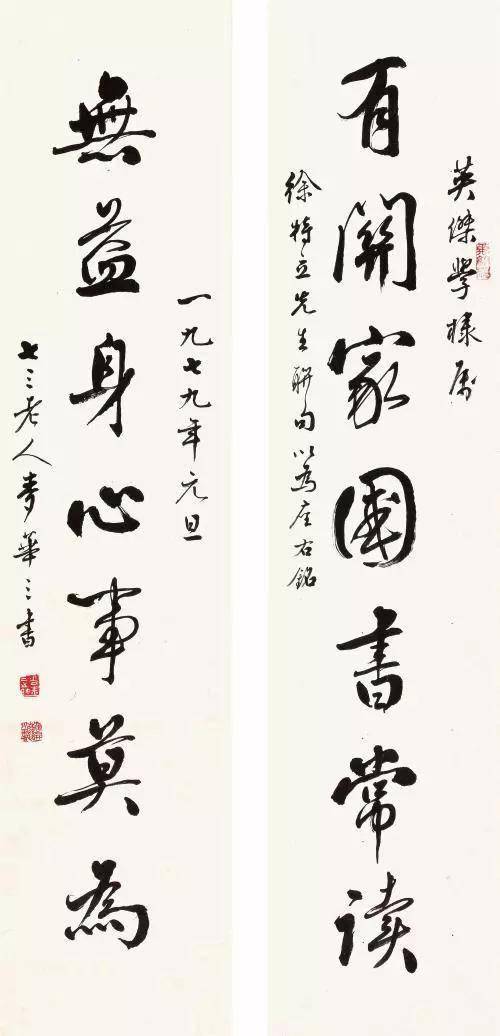 英傑學棣属
有關家國書常读
徐特立先生聯句以為座右銘
一九七九年元旦
無益身心事莫為
七三老人麥華三書